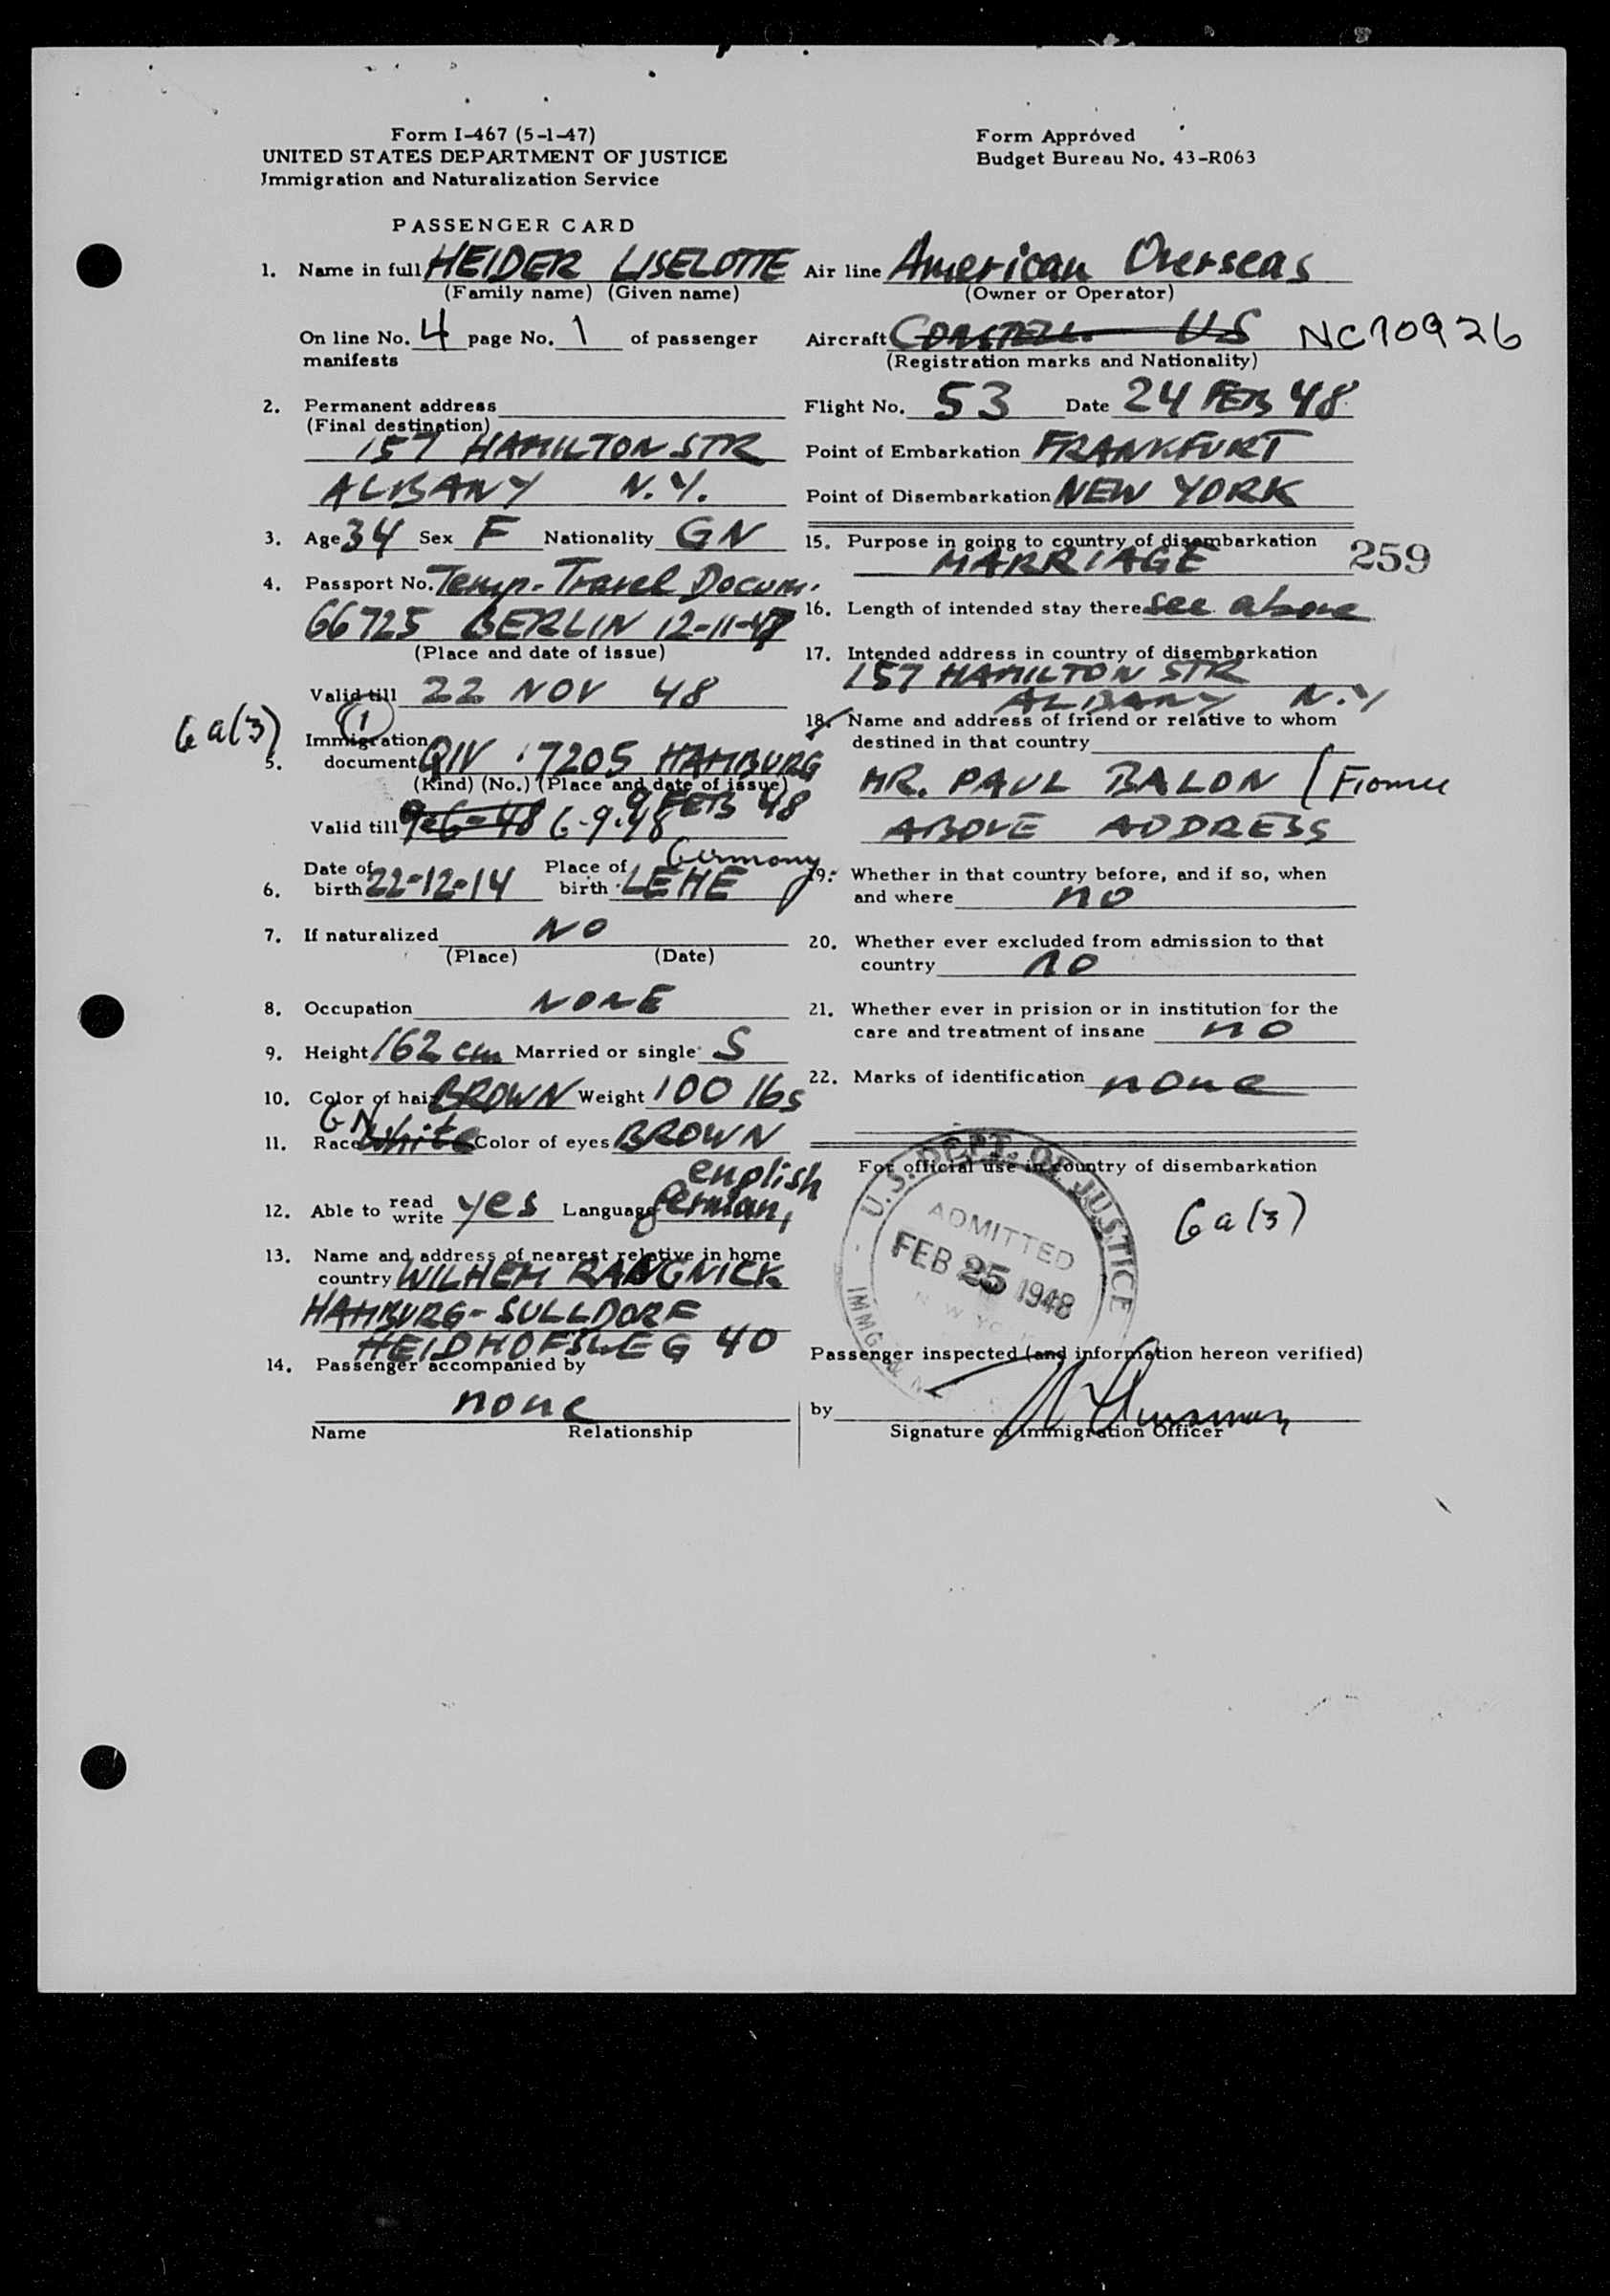 Form I-467 (5-1-47)
UNITED STATES DEPARTMENT OF JUSTICE
Immigration and Naturalization Service
Form Approved
Budget Bureau No. 43-R063
PASSENGER CARD
1. Name in full HEIDER LISELOTTE
(Family name) (Given name)
On line No. 4 page No. 1 of passenger
manifests
2. Permanent address
(Final destination)
157 HAMILTON STR
ALBANY N.Y.
3. Age 34 Sex F Nationality GN
4. Passport No. Temp. Travel Docum.
66725 BERLIN 12-11-47
(Place and date of issue)
Valid till 22 NOV 48
6a(3) 1
5. Immigration
document QIV 7205 HAMBURG
(Kind) (No.) (Place and date of issue)
9 FEB 48
Valid till 9-6-48 6-9-48
Germany
6. Date of birth 22-12-14 Place of birth LEHE
7. If naturalized NO
(Place) (Date)
8. Occupation NONE
9. Height 162 cm Married or single S
10. Color of hair BROWN Weight 100 lbs
GN
11. Race White Color of eyes BROWN
english
12. Able to read write yes Language German,
13. Name and address of nearest relative in home
country WILHEM RANGNICK
HAMBURG-SULLDORF
HEIDHOFSWEG 40
14. Passenger accompanied by
none
Name Relationship
Air line American Overseas
(Owner or Operator)
Aircraft CONSTELL. US NC90926
(Registration marks and Nationality)
Flight No. 53 Date 24 FEB 48
Point of Embarkation FRANKFURT
Point of Disembarkation NEW YORK
15. Purpose in going to country of disembarkation
MARRIAGE 259
16. Length of intended stay there see above
17. Intended address in country of disembarkation
157 HAMILTON STR
ALBANY N.Y
18. Name and address of friend or relative to whom
destined in that country
MR. PAUL BALON
ABOVE ADDRESS
19. Whether in that country before, and if so, when
and where no
20. Whether ever excluded from admission to that
country no
21. Whether ever in prision or in institution for the
care and treatment of insane no
22. Marks of identification none
For official use in country of disembarkation
6a(3)
U.S. DEPT. OF JUSTICE
ADMITTED
FEB 25 1948
Passenger inspected (and information hereon verified)
by
Signature of Immigration Officer